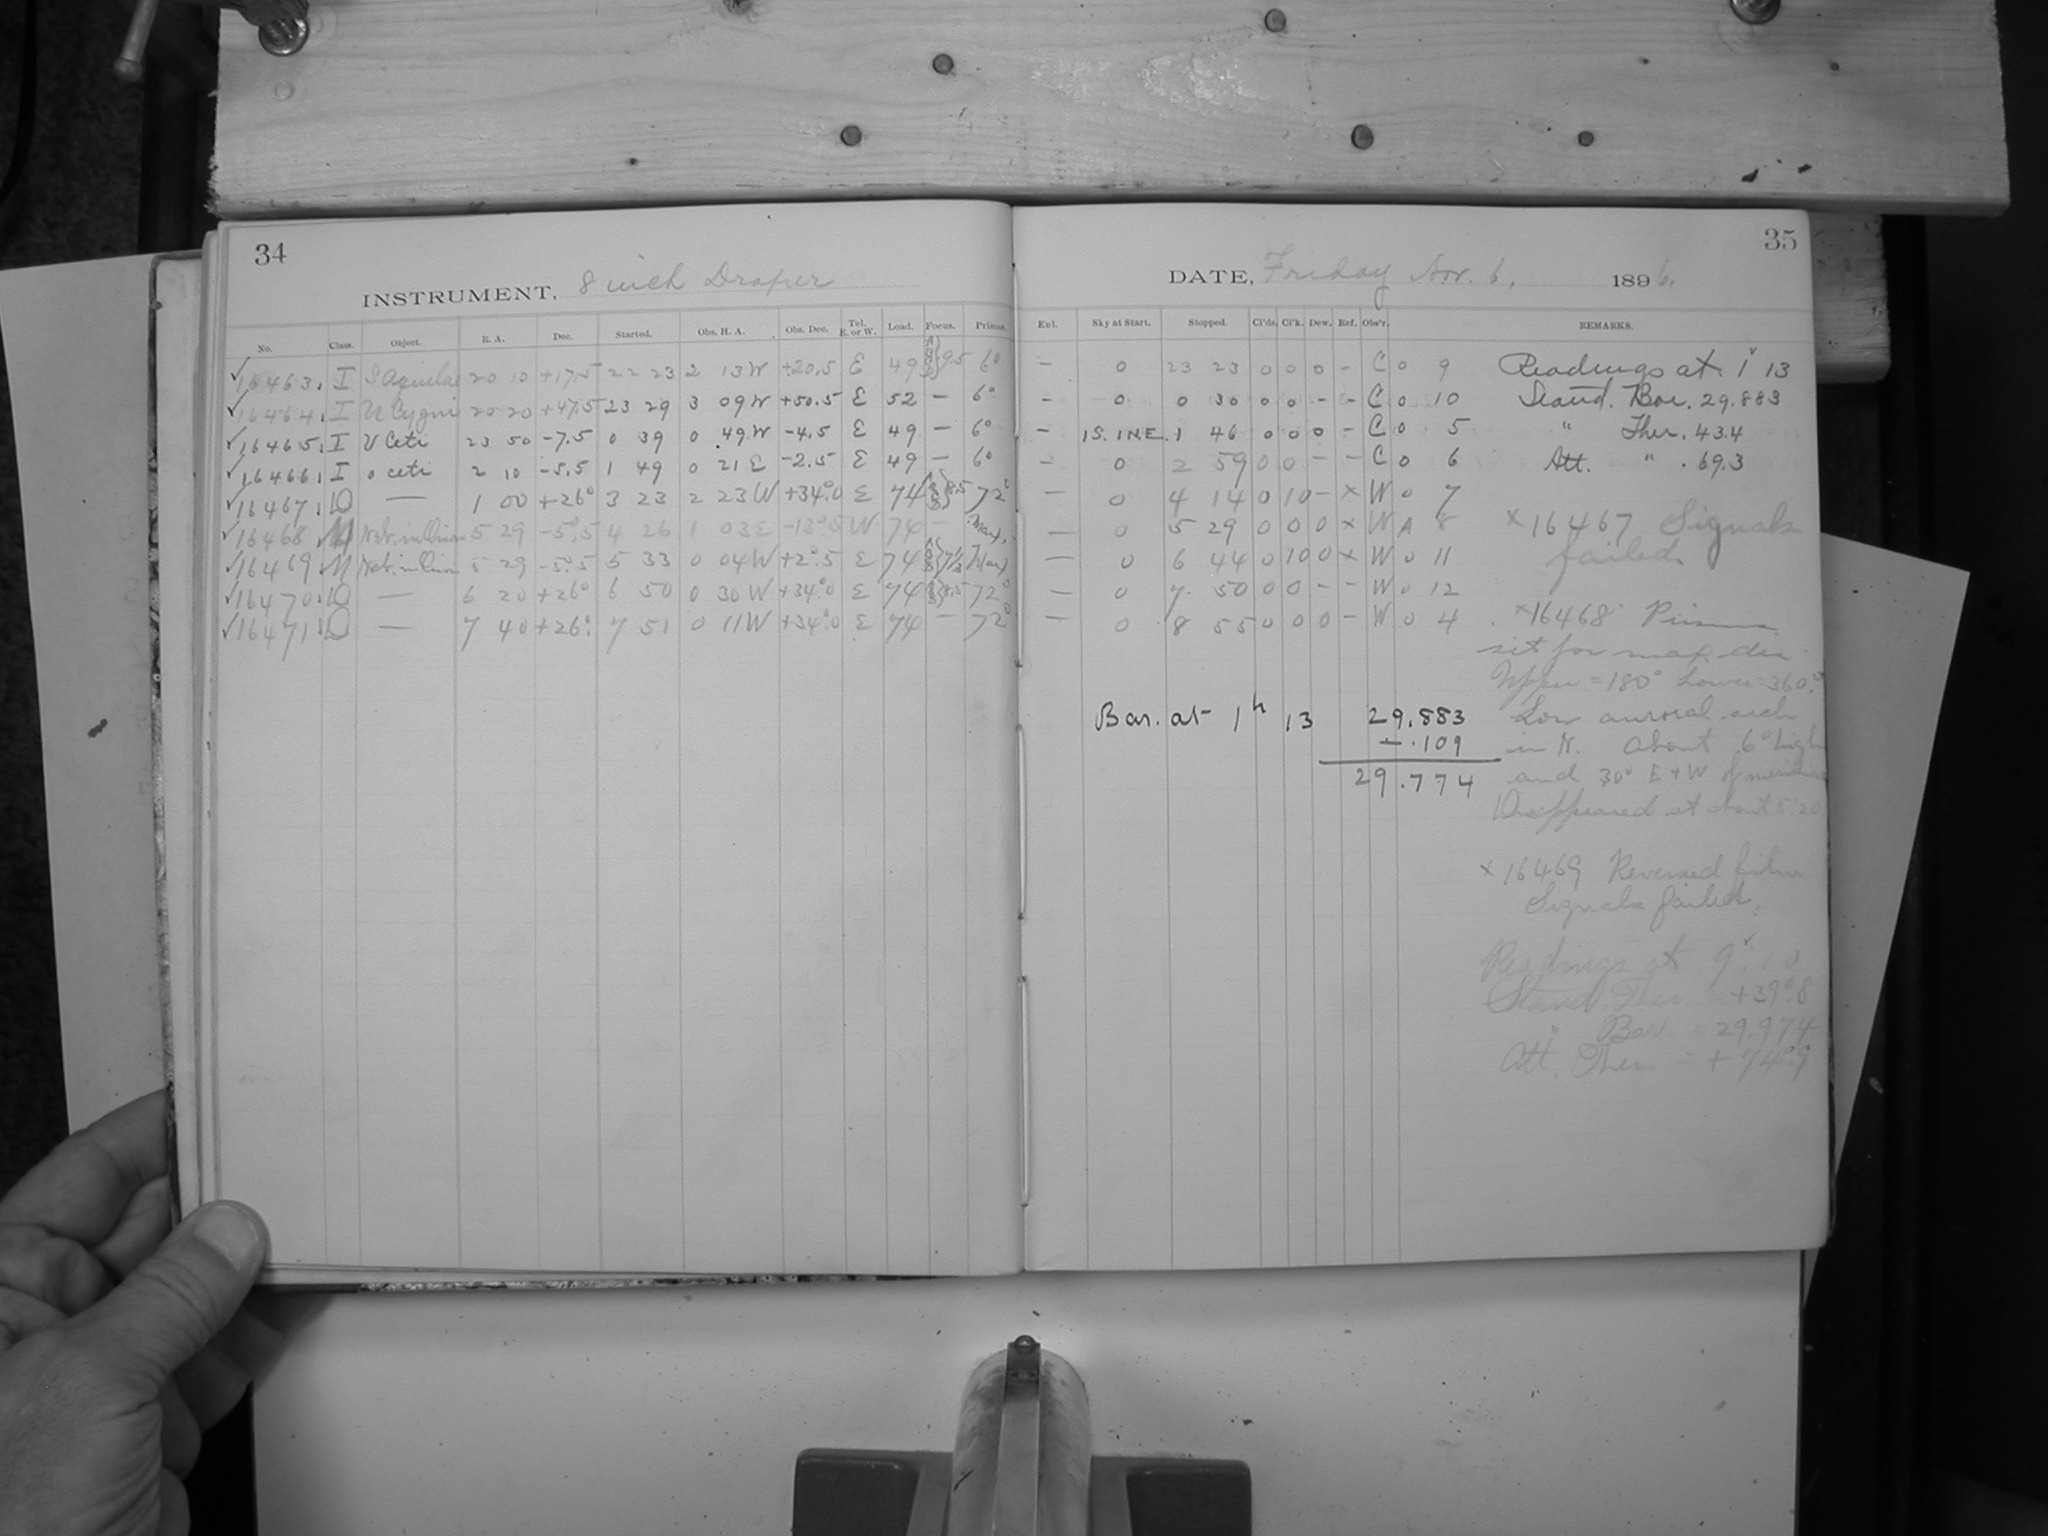 34
INSTRUMENT, 8 inch Draper
No. Class. Object. R. A. Dec. Started. Obs. H. A. Obs. Dec. Tel. E. or W. Load. Focus. Prisms.
✓16463. I S Aquilae 20 10 +17.5 22 23 2 13W +20.5 E 49 9.5 6°
✓16464. I U Cygni 20 20 +47.5 23 29 3 09W +50.5 E 52 — 6°
✓16465. I U Ceti 23 50 -7.5 0 39 0 49W -4.5 E 49 — 6°
✓16466. I o ceti 2 10 -5.5 1 49 0 21E -2.5 E 49 — 6°
✓16467. D — 1 00 +26° 3 23 2 23W +34°.0 E 74 8.5 72°
✓16468 M Neb. in Orion 5 29 -5°.5 4 26 1 03E -13°.5 W 74 — Max.
✓16469. M Neb. in Orion 5 29 -5°.5 5 33 0 04W +2°.5 E 74 7½ Max
✓16470. D — 6 20 +26° 6 50 0 30W +34°.0 E 74 8.5 72°
✓16471. D — 7 40 +26° 7 51 0 11W +34°.0 E 74 — 72°
35
DATE, Friday Nov. 6, 1896.
Enl. Sky at Start. Stopped. Cl'ds. Cl'k. Dew. Ref. Obs'r. REMARKS.
— 0 23 23 0 0 0 - C 0 9
— 0 0 30 0 0 - - C 0 10
— 1S. 1NE. 1 46 0 0 0 - C 0 5
— 0 2 59 0 0 - - C 0 6
— 0 4 14 0 10 - x W 0 7
— 0 5 29 0 0 0 x W A 8
— 0 6 44 0 10 0 x W 0 11
— 0 7 50 0 0 - - W 0 12
— 0 8 55 0 0 0 - W 0 4
Bar. at 1h 13 29.883
- .109
29.774
Readings at 1 13
Stand. Bar. 29.883
" Ther. 43.4
Att. " . 69.3
x16467 Signals
failed.
x16468 Prisms
set for max. dis.
Upper = 180° Lower = 360°
Low auroral arch
in N. About 6° high
and 30° E + W of meridian
Disappeared at about 5:20
x16469 Reversed film
Signals failed.
Readings at 9 10
Stand. Ther. +39°.8
" Bar. = 29.974
Att. Ther. + 74°.9